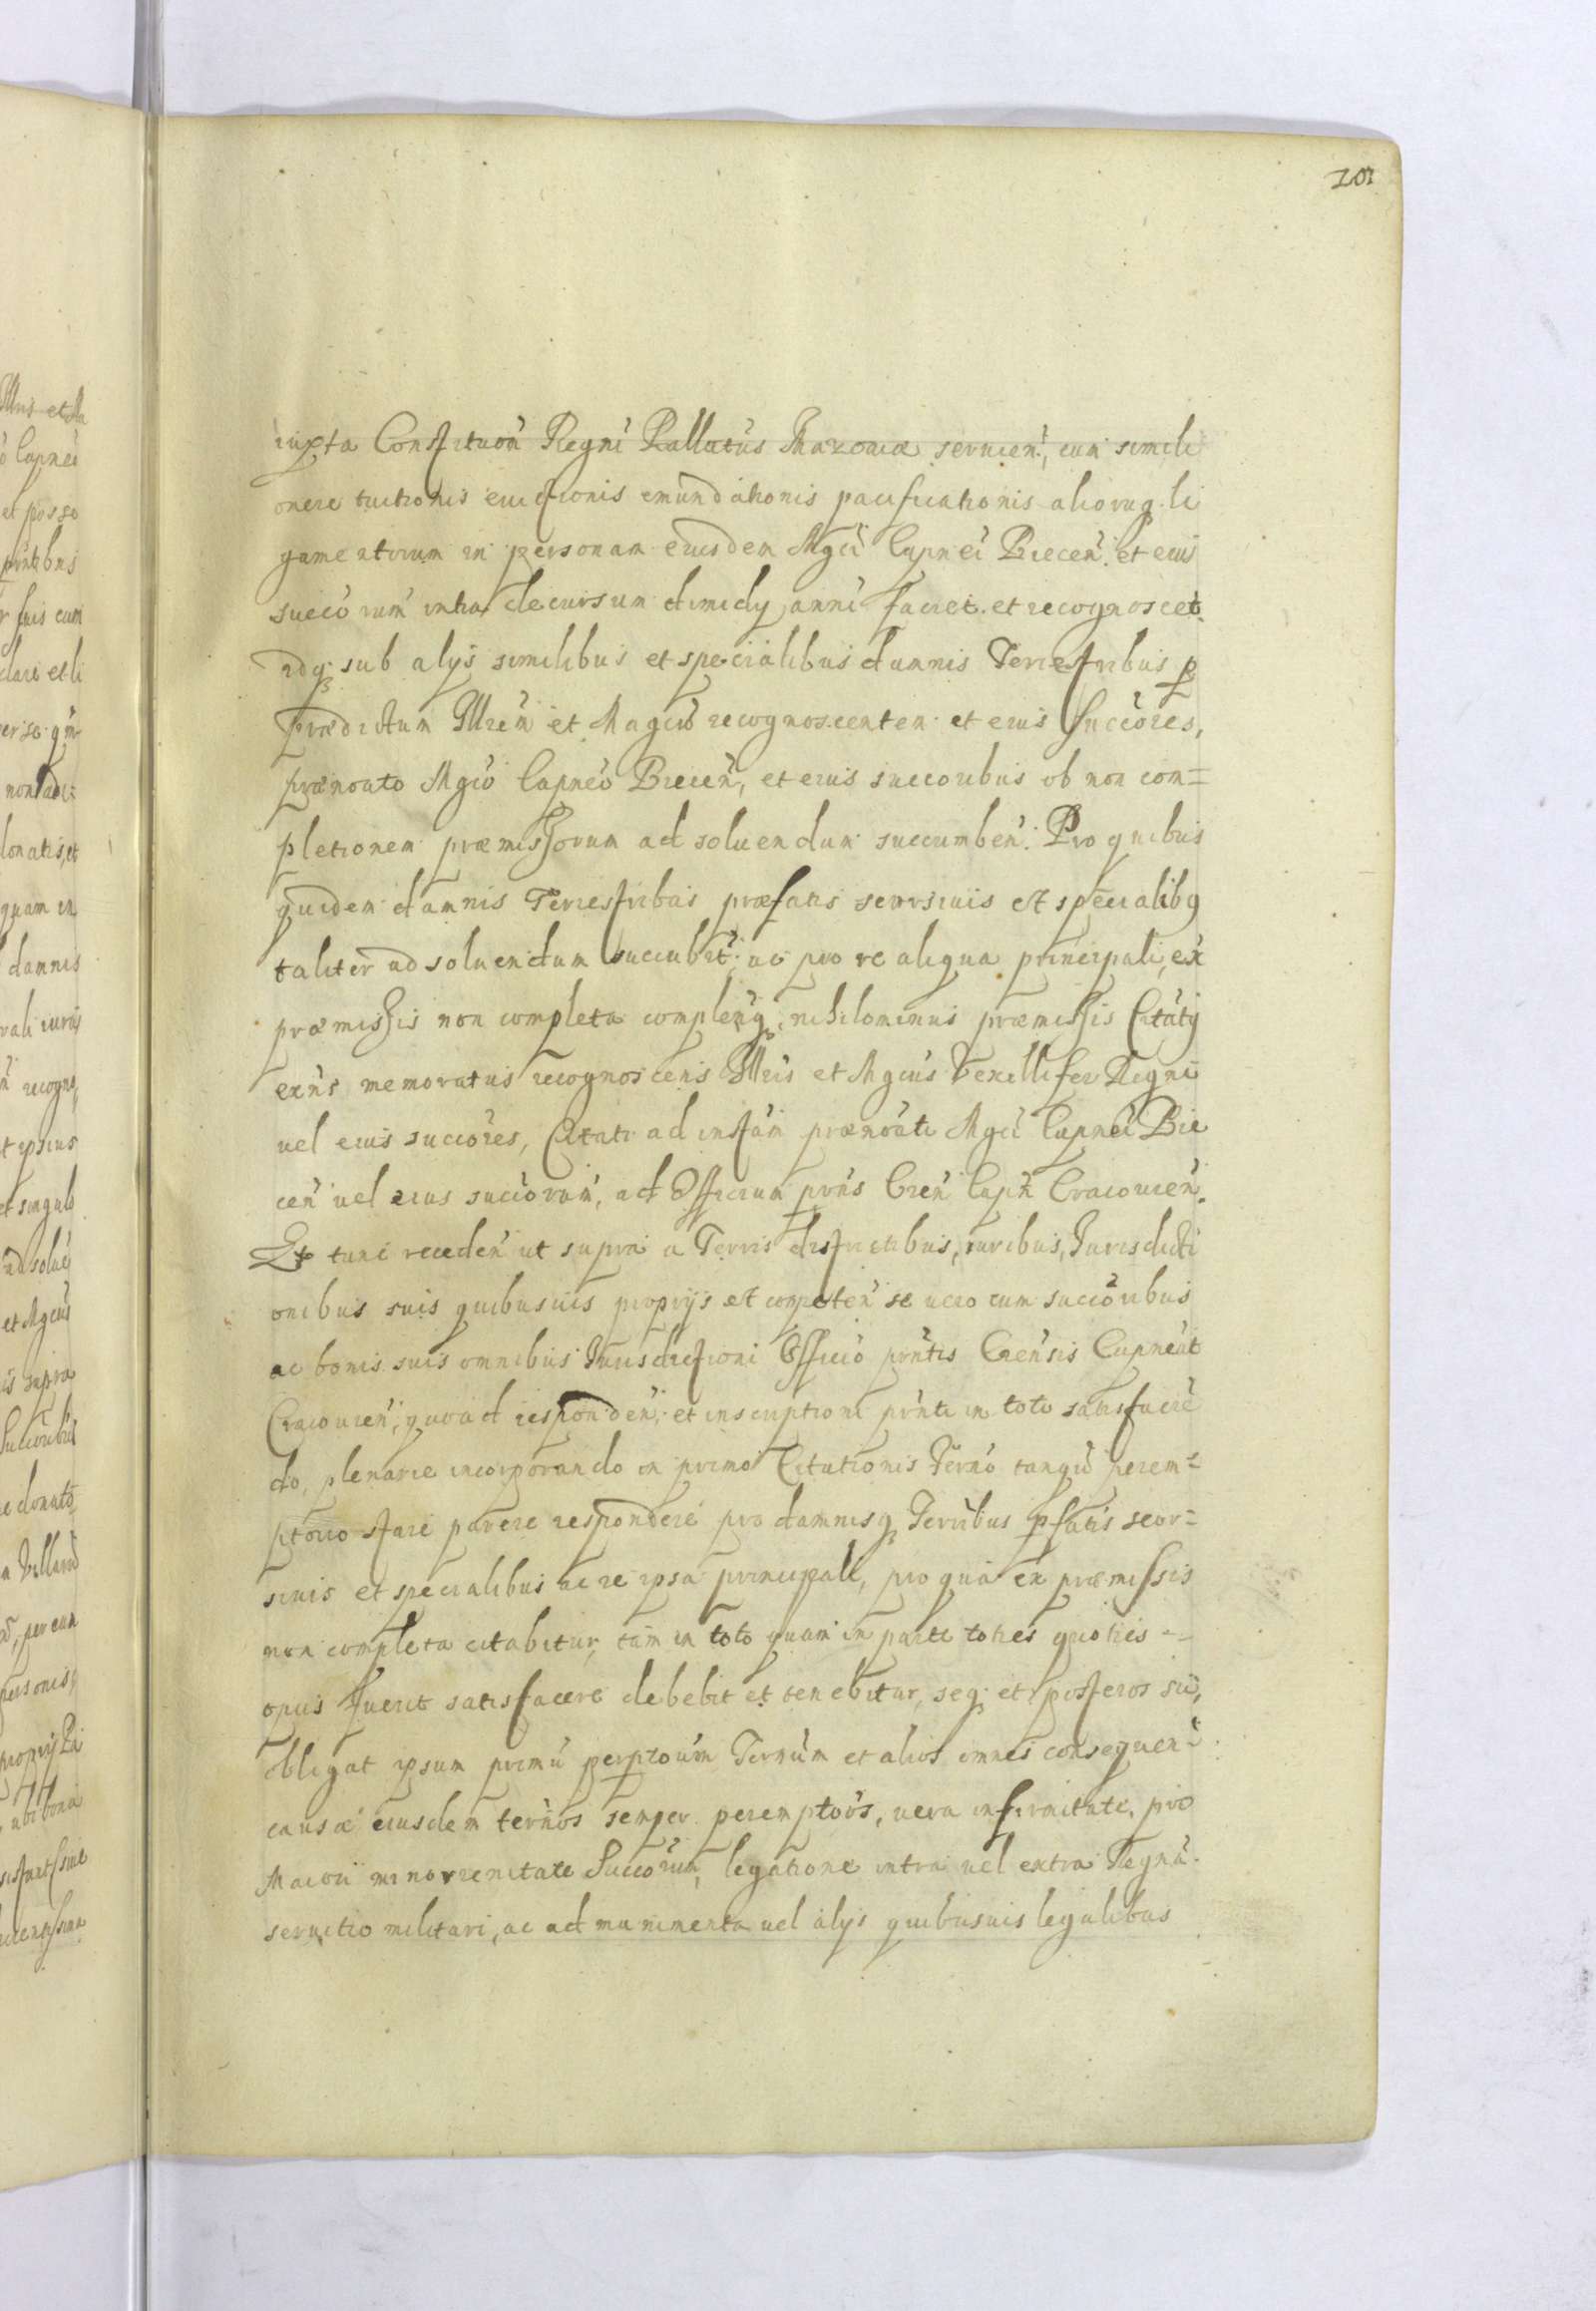 101
iuxta Constituōn Regni Pallatūs Mazoviæ seruien̄, cum simili
onere tuitionis euictionis emundationis pacificationis aliorūq. li
gamentorum in personam eiusdem Mgci Capnei Biecen̄. et eius
succōrum intra decursum dimidy anni faciet et recognoscet.
idq; sub alys similibus et specialibus damnis Terrestribus p̱
prædictum Illrēm et Magcū recognoscentem et eius Succōres,
prænoāto Mgcō Capneō Biecen̄, et eius succoribus ob non com=
pletionem præmissorum ad soluendum succumben̄. Pro quibus
quidem damnis Terrestribus præfatis seorsiuis et specialibq
taliter ad soluendum succubit̄; ac pro re aliqua principali, ex
præmissis non completa complenq; nihilominus præmissis Citatq
exn̄s memoratus recognoscens Illris et Mgcus Vexillifer Regni
uel eius succōres, Citati ad instān prænoāti Mgci Capnei Bie
cen̄ uel eius succōrum, ad Officium prn̄s Cren̄ Capn̄ Cracouien̄.
Ex tunc receden̄ ut supra a Terris districtibus, iuribus, Jurisdicti
onibus suis quibusuis proprijs et competen̄ se uero cum succōribus
ac bonis suis omnibus Jurisdictioni Officiō prn̄tis Cren̄sis Capneāt
Cracouien̄, quoad responden̄; et inscriptioni prn̄ti in toto satisfacien̄
do, plenarie incorporando in primo Citationis Termō tanqū perem=
ptorio stare parere respondere pro damnisq; Terribus p̱fatis seor=
siuis et specialibus ac re ipsa principali, pro qua ex præmissis
non completa citabitur, tām in toto quam in parte toties quoties -
opus fuerit satisfacere debebit et tenebitur, seq; et posteros suōs,
obligat ipsum primū perp̱toūm Termūm et alios omnes consequen̄
causæ eiusdem termōs semper peremptōos, uera infirmitate, pro
Maiori minorrenitate Succōrum, legatione intra uel extra Regnū
seruitio militari, ac ad munimenta uel alys quibusuis legalibus